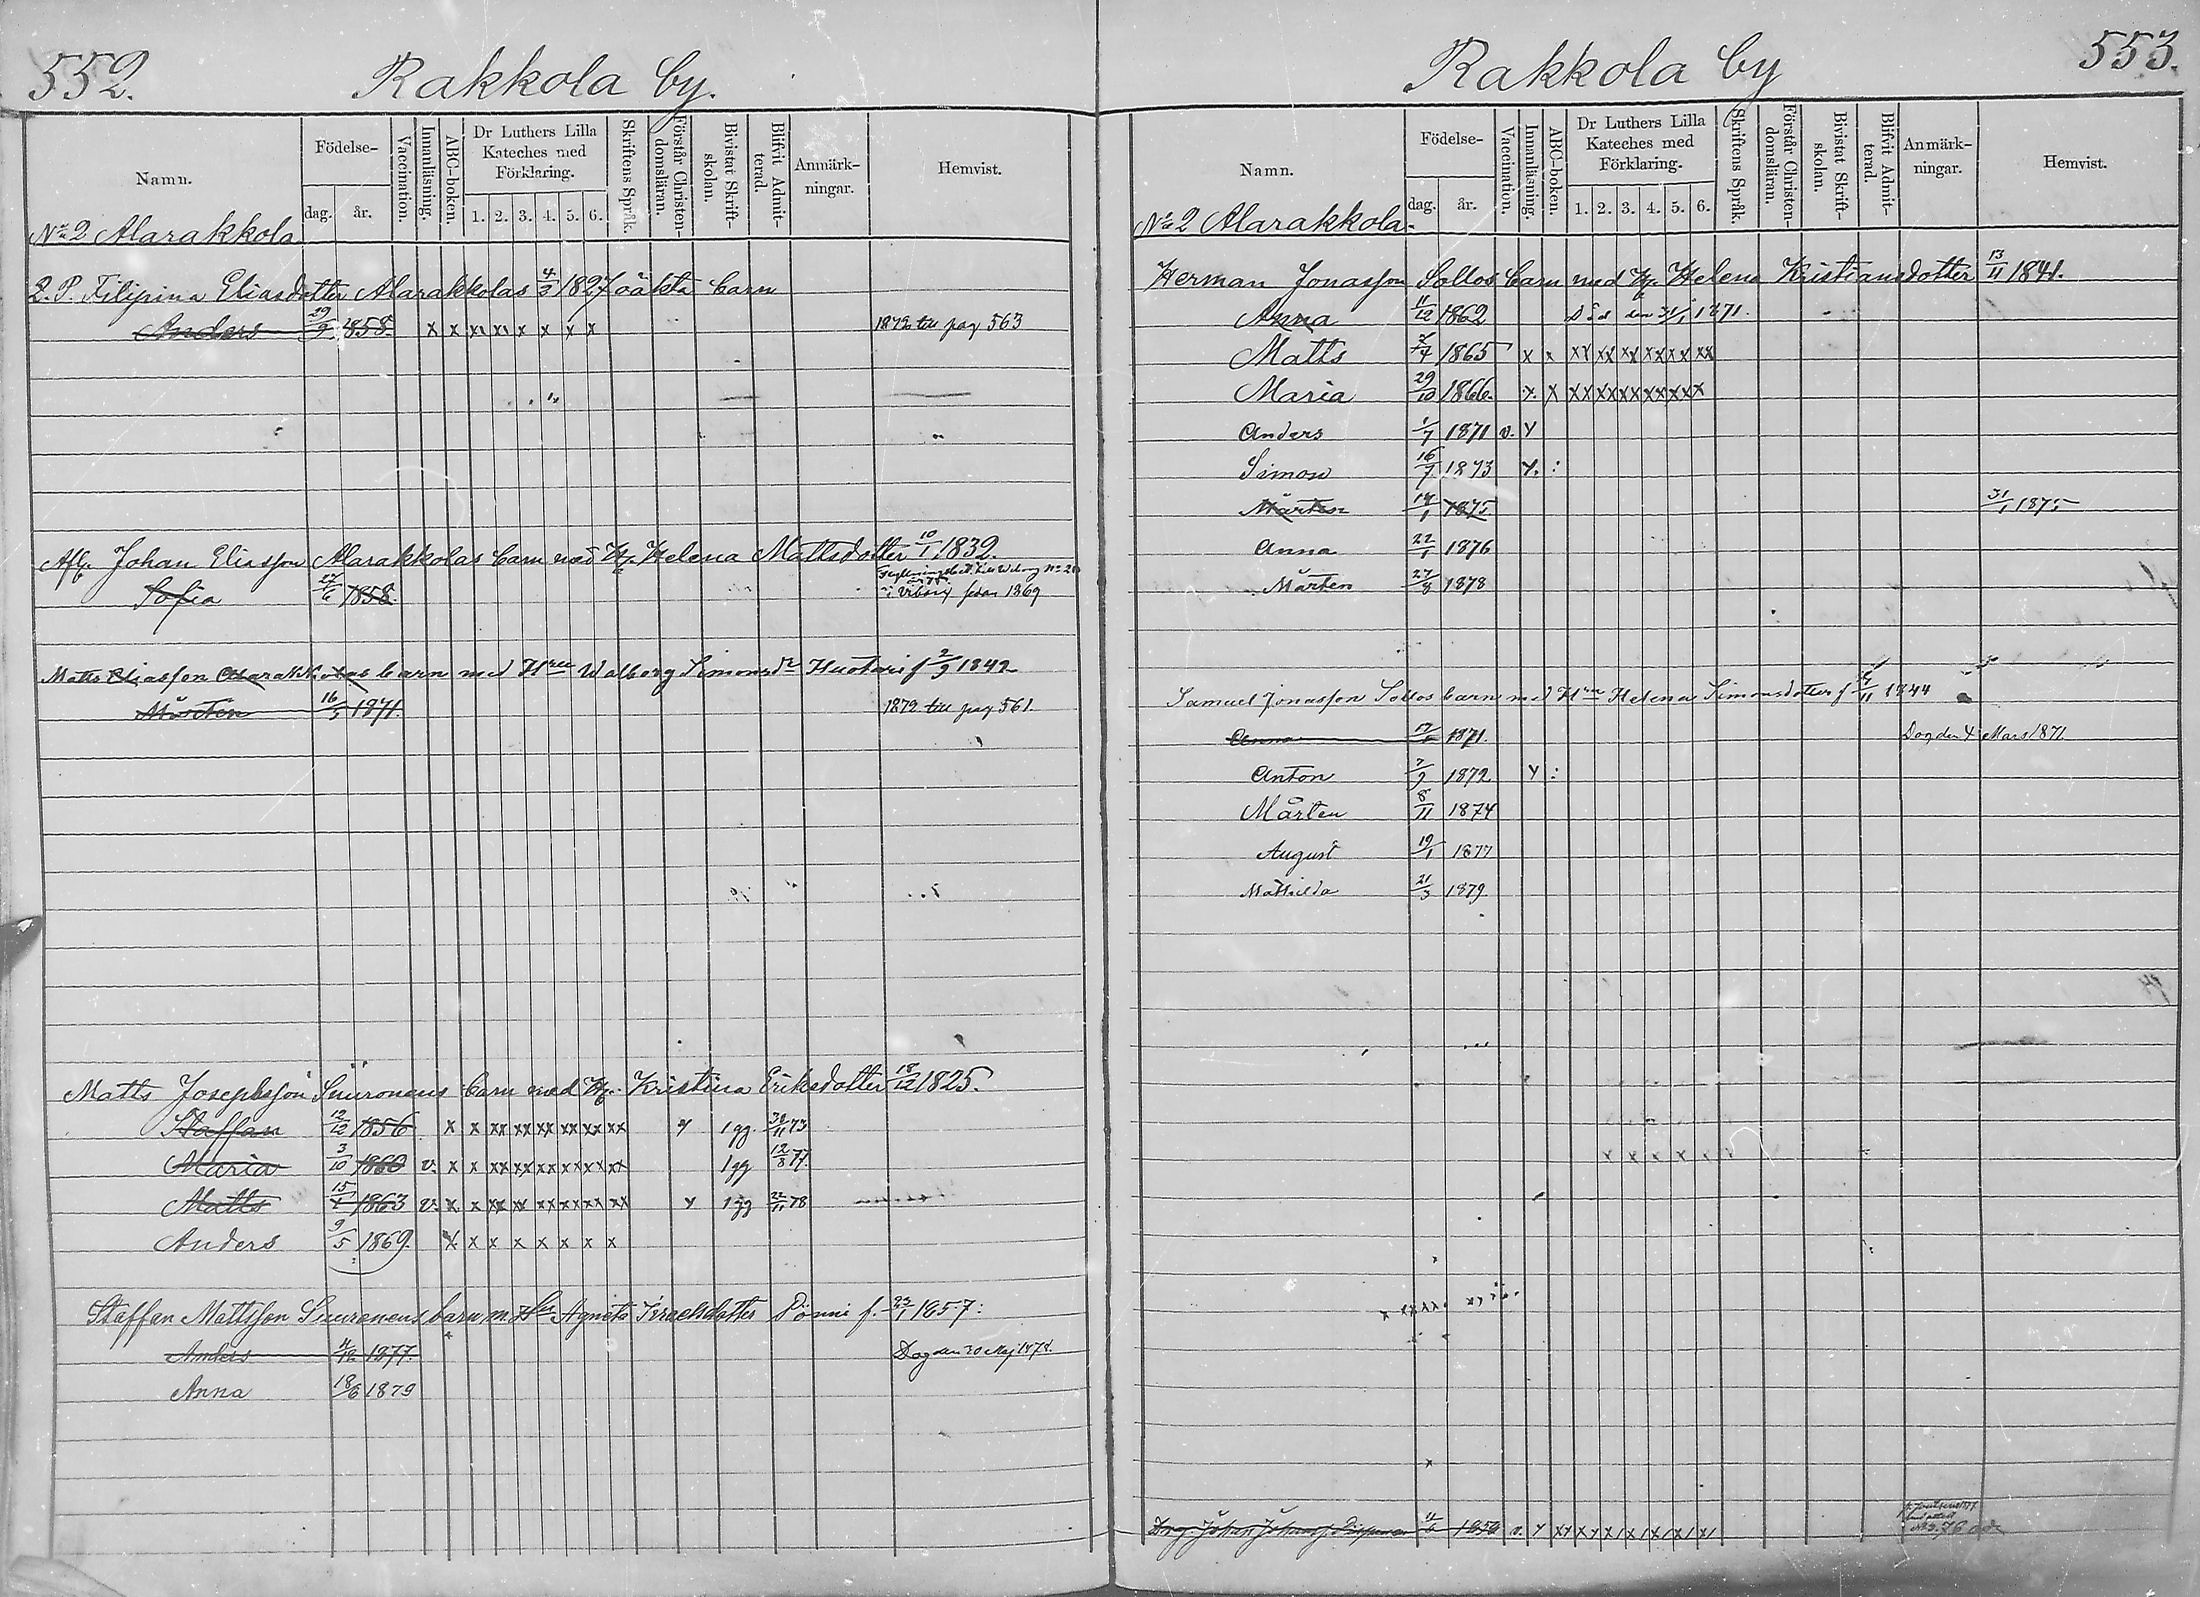 552.
Rakkola by.
Namn.
Födelse-
dag.
år.
Vaccination.
Innanläsning.
ABC-boken.
Dr Luthers Lilla Kateches med Förklaring.
1. 2. 3. 4. 5. 6.
Skriftens Språk.
Förstår Christen-domsläran.
Bivistat Skrift-skolan.
Blifvit Admit-terad.
Anmärk-ningar.
Hemvist.
No 2 Alarakkola
Q. P. Filipina Eliasdotter Alarakkolas 4/3 1827 oäkta barn
Anders 29/9 1858. x x xx xx x x x x 1872 till pag 563
Afl. Johan Eliasson Alarakkolas barn med H. Helena Mattsdotter 10/1 1832.
Sofia 27/6 1858. i Viborg sedan 1869
Matts Eliassen Alarakkolas barn med Hru Walborg Simonsdr Huotari f 2/9 1842
Mårten 16/3 1871. 1872 till pag 561.
Matts Josephsson Suuronens barn med H. Kristina Eriksdotter 18/12 1825.
Staffan 12/12 1856 x x xx xx xx xx xx xx y 1 gg. 30/11 73
Maria 3/10 1860 v. x x xx xx xx xx xx xx 1 gg 12/8 77.
Matts 15/4 1863 v. x x xx xx xx xx xx xx y 1 gg 22/11 78
Anders 9/5 1869. x x x x x x x x
Staffan Mattsson Suuronens barn m. Hu Agneta Israelsdotter Pönni f. 23/1 1857:
Anders 4/12 1877. Dog den 20 Maj 1878.
Anna 18/6 1879
553.
Rakkola by
Namn.
Födelse-
dag.
år.
Vaccination.
Innanläsning.
ABC-boken.
Dr Luthers Lilla Kateches med Förklaring.
1. 2. 3. 4. 5. 6.
Skriftens Språk.
Förstår Christen-domsläran.
Bivistat Skrift-skolan.
Blifvit Admit-terad.
Anmärk-ningar.
Hemvist.
No 2 Alarakkola.
Herman Jonasson Sollos barn med H. Helena Kristiansdotter 13/11 1841.
Anna 11/12 1862 Död den 31/1 1871.
Matts 7/4 1865 x x xx xx xx xx xx xx
Maria 29/10 1866. x. x xx xx xx xx xx x
Anders 1/7 1871 v. y
Simon 16/7 1873 y. :
Mårten 14/1 1875 31/1 1875
Anna 22/1 1876
Mårten 27/8 1878
Samuel Jonasson Sollos barn med Hru Helena Simonsdotter f 1844
Anna 1871. Dog den 4 Mars 1871
Anton 7/9 1872 y :
Mårten 8/11 1874
August 19/1 1877
Mathilda 21/3 1879